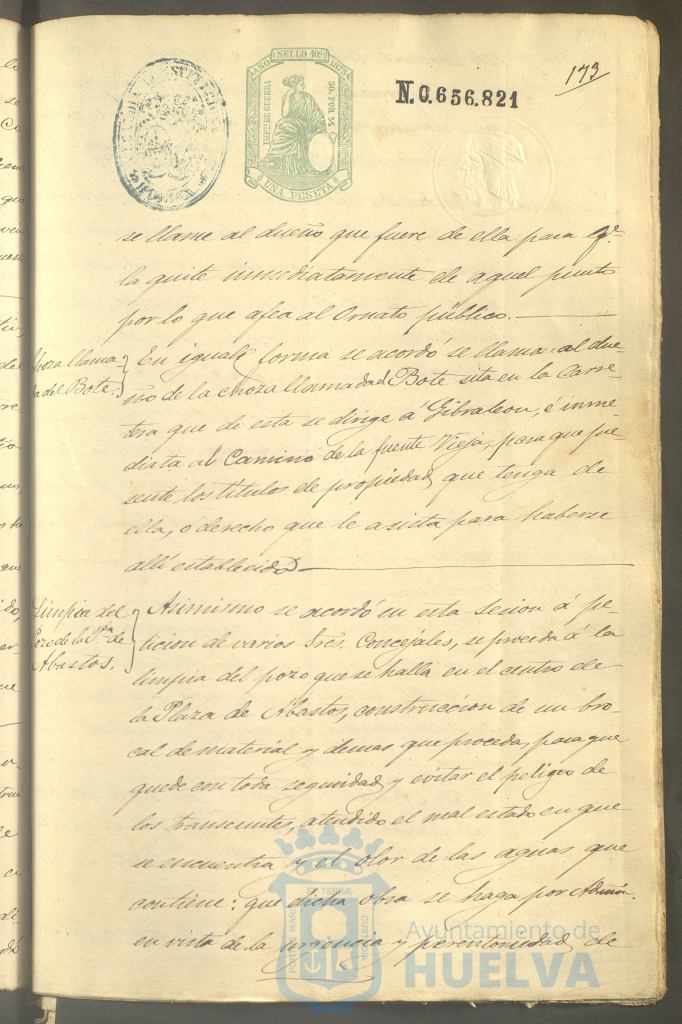 AÑO SELLO 10º 1875
IMPTO DE GUERRA
50 POR %
UNA PESETA
N.0.656.821
173
se llame al dueño que fuere de ella para qe.
la quite inmediatamente de aquel punto
por lo que afea al Ornato público.
Choza llama-
da del Bote.
En igual forma se acordó se llame al due-
ño de la choza llamada del Bote sita en la Carre-
tera que de esta se dirige á Gibraleon, é inme-
diata al Camino de la fuente Vieja, para que pre
sente los títulos de propiedad que tenga de
ella, ó derecho que le asista para haberse
allí establecido
Limpia del
Pozo de la Pza. de
Abastos.
Asimismo se acordó en esta sesion á pe-
ticion de varios Sres. Concejales, se proceda á la
limpia del pozo que se halla en el centro de
la Plaza de Abastos, construccion de un bro-
cal de material y demas que proceda, para que
quede con toda seguridad y evitar el peligro de
los transeuntes, atendido el mal estado en que
se encuentra y el olor de las aguas que
contiene: que dicha obra se haga por Admón.
en vista de la urgencia y perentoriedad de
Ayuntamiento de
HUELVA